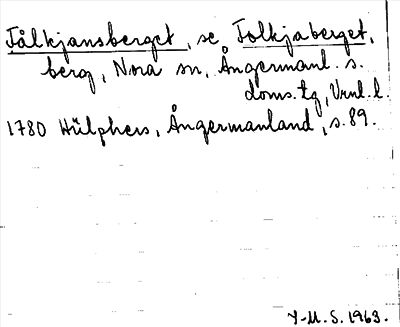 Tålkjansberget, se Tolkjaberget,
berg, Nora sn, Ångermanl. s.
doms.tg, Vrnl. l.
1780 Hülphers, Ångermanland, s. 89.
Y-M. S. 1963.